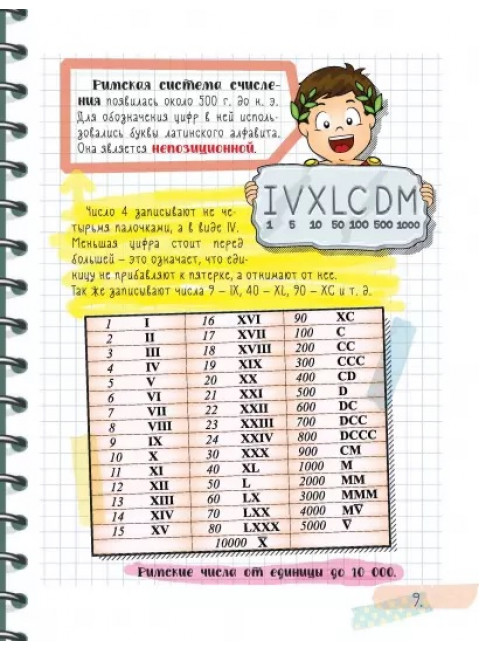 Римская система счисле-
ния появилась около 500 г. до н. э.
Для обозначения цифр в ней исполь-
зовались буквы латинского алфавита.
Она является непозиционной.
I V X L C D M
1 5 10 50 100 500 1000
Число 4 записывают не че-
тырьмя палочками, а в виде IV.
Меньшая цифра стоит перед
большей – это означает, что еди-
ницу не прибавляют к пятерке, а отнимают от нее.
Так же записывают числа 9 – IX, 40 – XL, 90 – XC и т. д.
1 I 16 XVI 90 XC
2 II 17 XVII 100 C
3 III 18 XVIII 200 CC
4 IV 19 XIX 300 CCC
5 V 20 XX 400 CD
6 VI 21 XXI 500 D
7 VII 22 XXII 600 DC
8 VIII 23 XXIII 700 DCC
9 IX 24 XXIV 800 DCCC
10 X 30 XXX 900 CM
11 XI 40 XL 1000 M
12 XII 50 L 2000 MM
13 XIII 60 LX 3000 MMM
14 XIV 70 LXX 4000 MV̅
15 XV 80 LXXX 5000 V̅
10000 X̅
Римские числа от единицы до 10 000.
9.